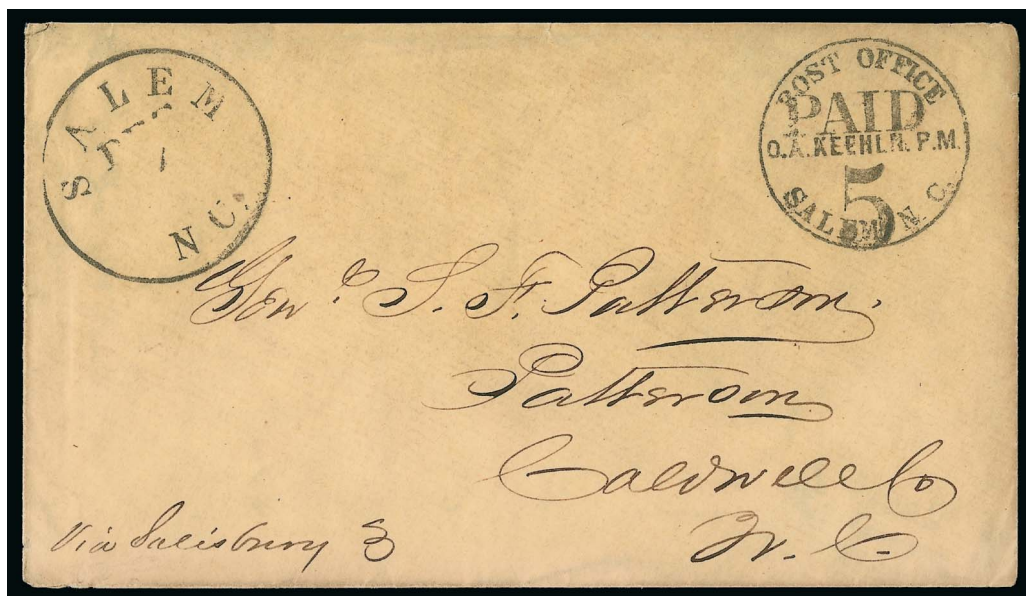 SALEM
DEC
N C.
POST OFFICE
PAID
O.A. KEEHLN. P.M.
5
SALEM N. C.
Genl. S. F. Patterson.
Patterson
Caldwell Co
N. C.
Via Salisbury